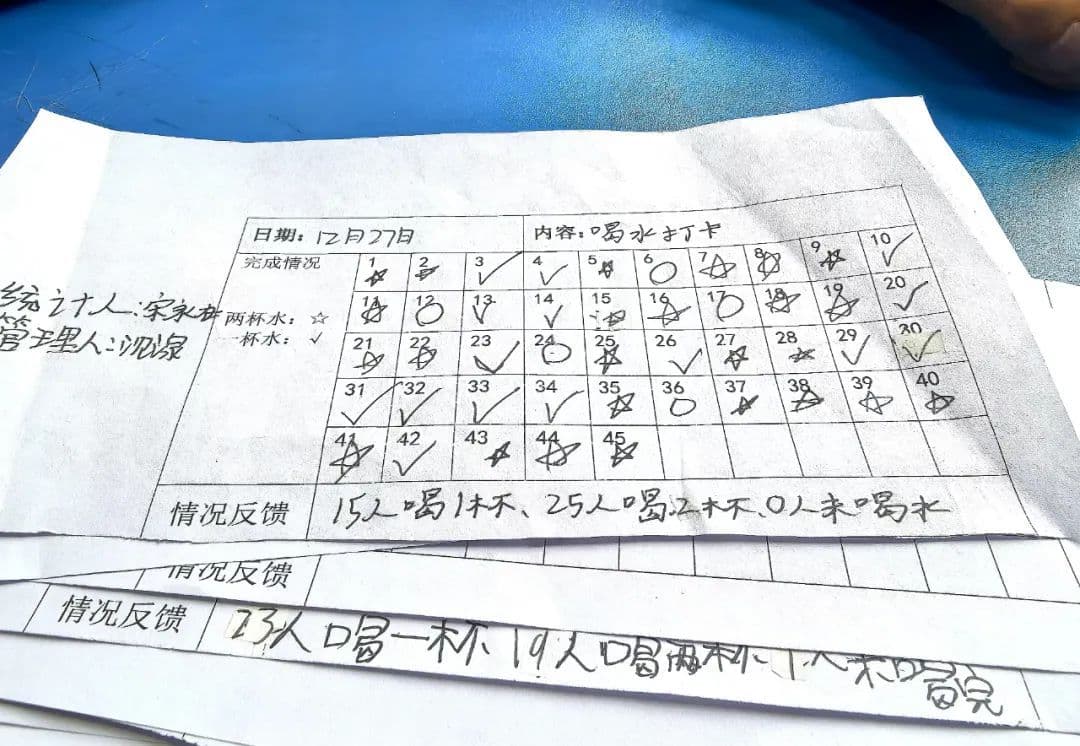 日期：12月27日 内容：喝水打卡
完成情况
两杯水：☆
一杯水：✓
统计人：宋永
管理人：沈湶
1 ☆ 2 ☆ 3 ✓ 4 ✓ 5 ☆ 6 ○ 7 ☆ 8 ☆ 9 ☆ 10 ✓
11 ☆ 12 ○ 13 ✓ 14 ✓ 15 ☆ 16 ☆ 17 ○ 18 ☆ 19 ☆ 20 ✓
21 ☆ 22 ☆ 23 ✓ 24 ○ 25 ☆ 26 ✓ 27 ☆ 28 ☆ 29 ✓ 30 ✓
31 ✓ 32 ✓ 33 ✓ 34 ✓ 35 ☆ 36 ○ 37 ☆ 38 ☆ 39 ☆ 40 ☆
41 ☆ 42 ✓ 43 ☆ 44 ☆ 45 ☆
情况反馈 15人喝1杯、25人喝2杯、0人未喝水
情况反馈
情况反馈 23人喝一杯 19人喝两杯 1人未喝完